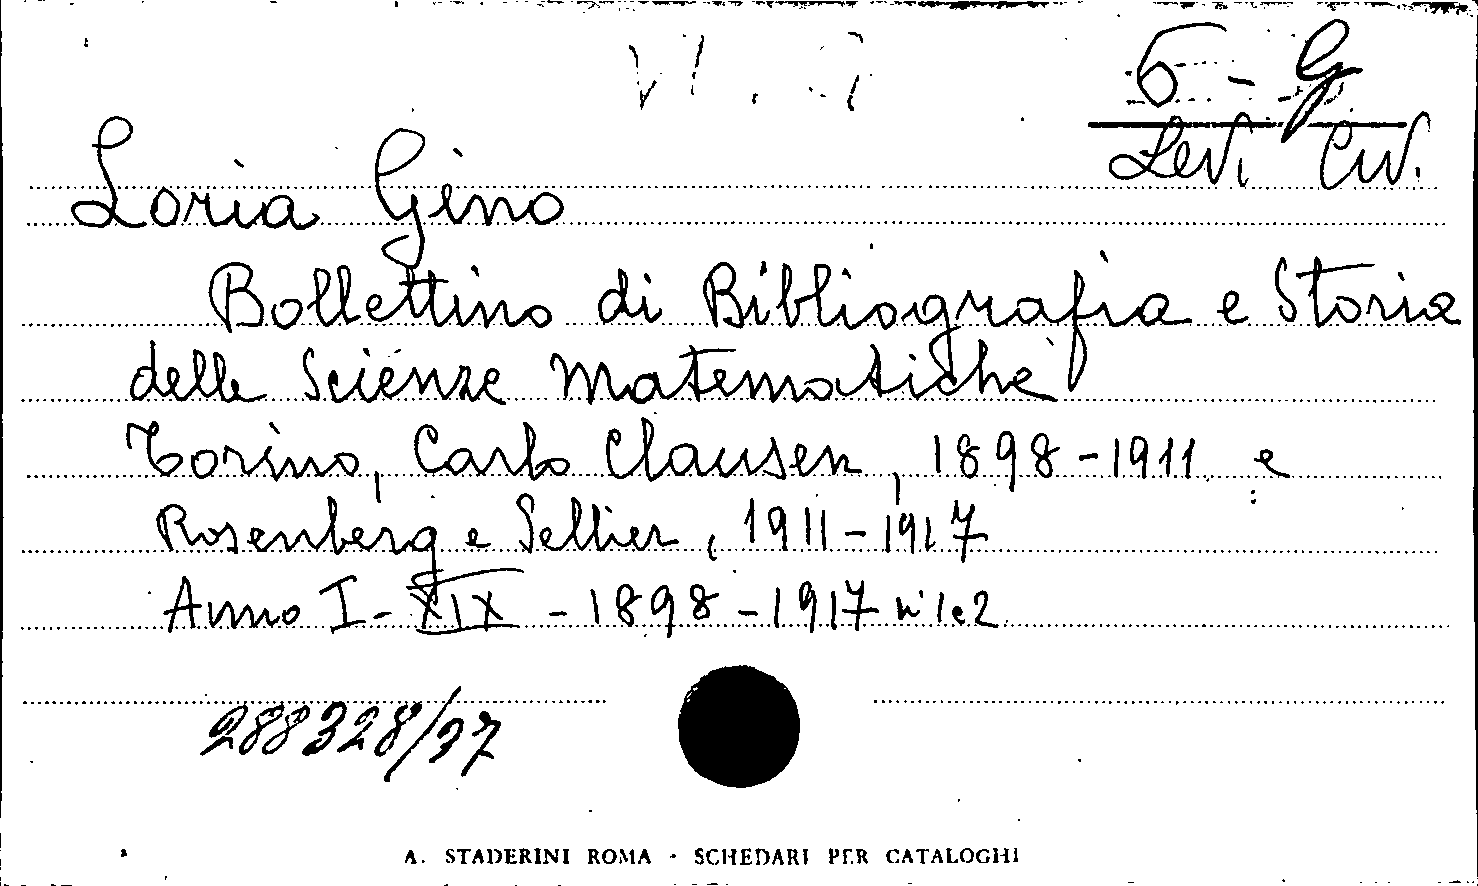 5 - G
Levi Civ.
Loria Gino
Bollettino di Bibliografia e Storia
delle Scienze Matematiche
Torino, Carlo Clausen, 1898-1911 e
Rosenberg e Sellier, 1911-1917
Anno I-XIX - 1898-1917 n° 1e2
288328/37
A. STADERINI ROMA · SCHEDARI PER CATALOGHI